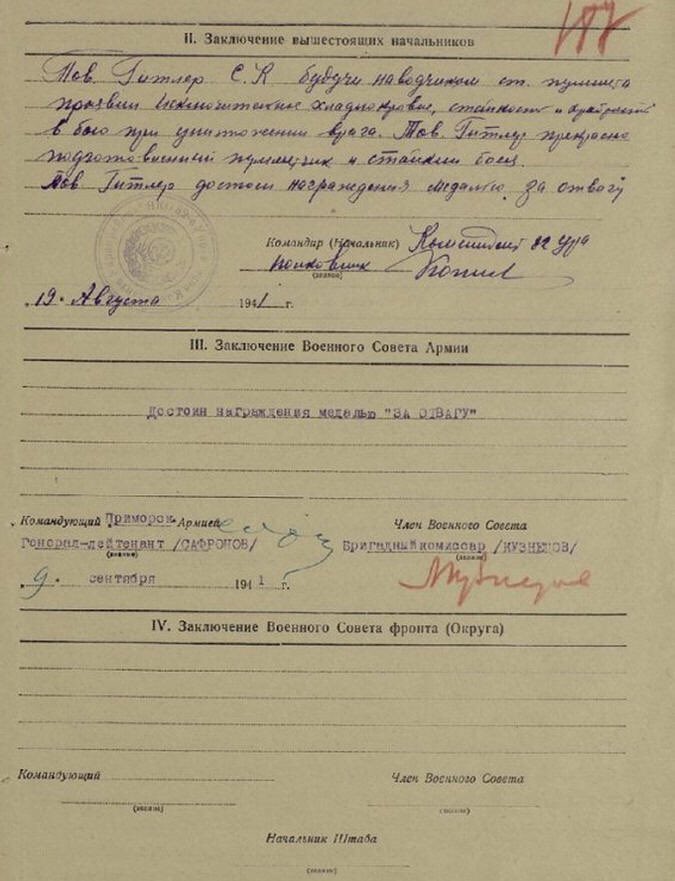 187
II. Заключение вышестоящих начальников
Тов. Гитлер С.К будучи наводчиком ст. пулимета
проявил исключительное хладнокровие, стойкость и храбрость
в бою при уничтожении врага. Тов. Гитлер прекрасно
подготовленный пулиметчик и стойкий боец.
Тов. Гитлер достоин награждения медалью за отвагу
Командир (Начальник) Комендант 82 Ура
полковник
(звание)
19. Августа 1941 г.
III. Заключение Военного Совета Армии
Достоин награждения медалью "ЗА ОТВАГУ"
Командующий Приморск. Армией
Член Военного Совета
Генерал-лейтенант /САФРОНОВ/
Бригадный комиссар /КУЗНЕЦОВ/
(звание)
(звание)
9 сентября 1941 г.
IV. Заключение Военного Совета фронта (Округа)
Командующий
Член Военного Совета
(звание)
(звание)
Начальник Штаба
(звание)